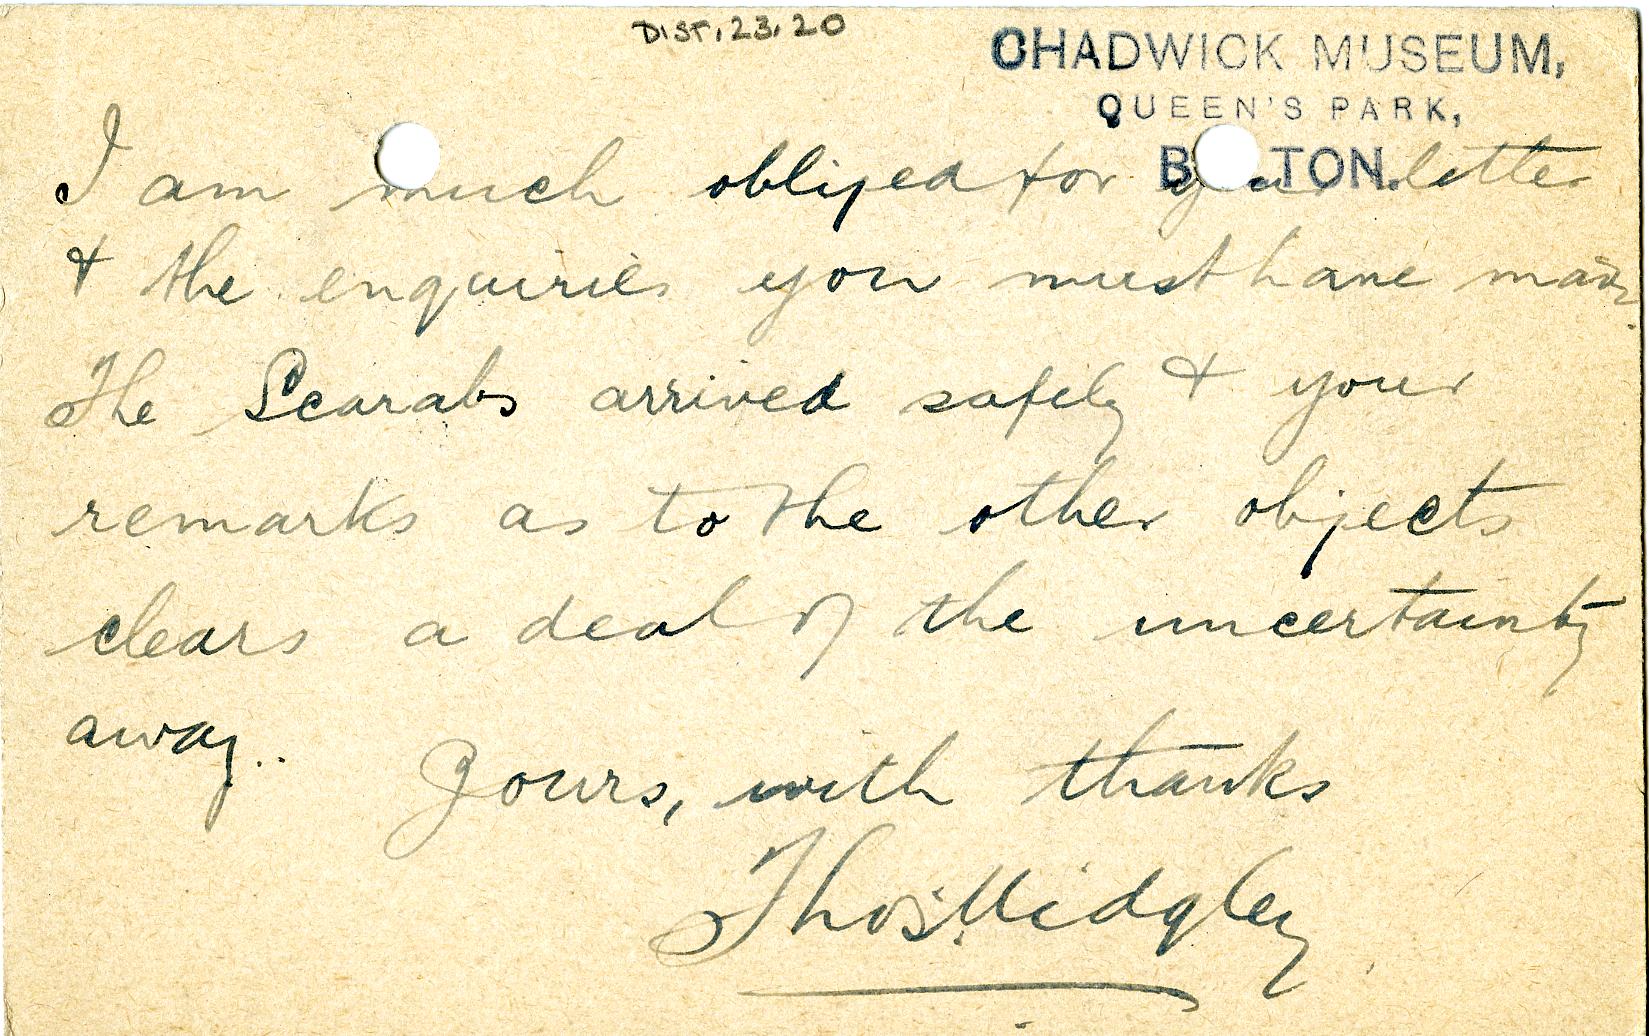 DIST.23.20
CHADWICK MUSEUM,
QUEEN'S PARK,
BOLTON.
I am much obliged for your letter
& the enquiries you must have made.
The Scarabs arrived safely & your
remarks as to the other objects
clears a deal of the uncertainty
away..
Yours, with thanks
Thos. Midgley